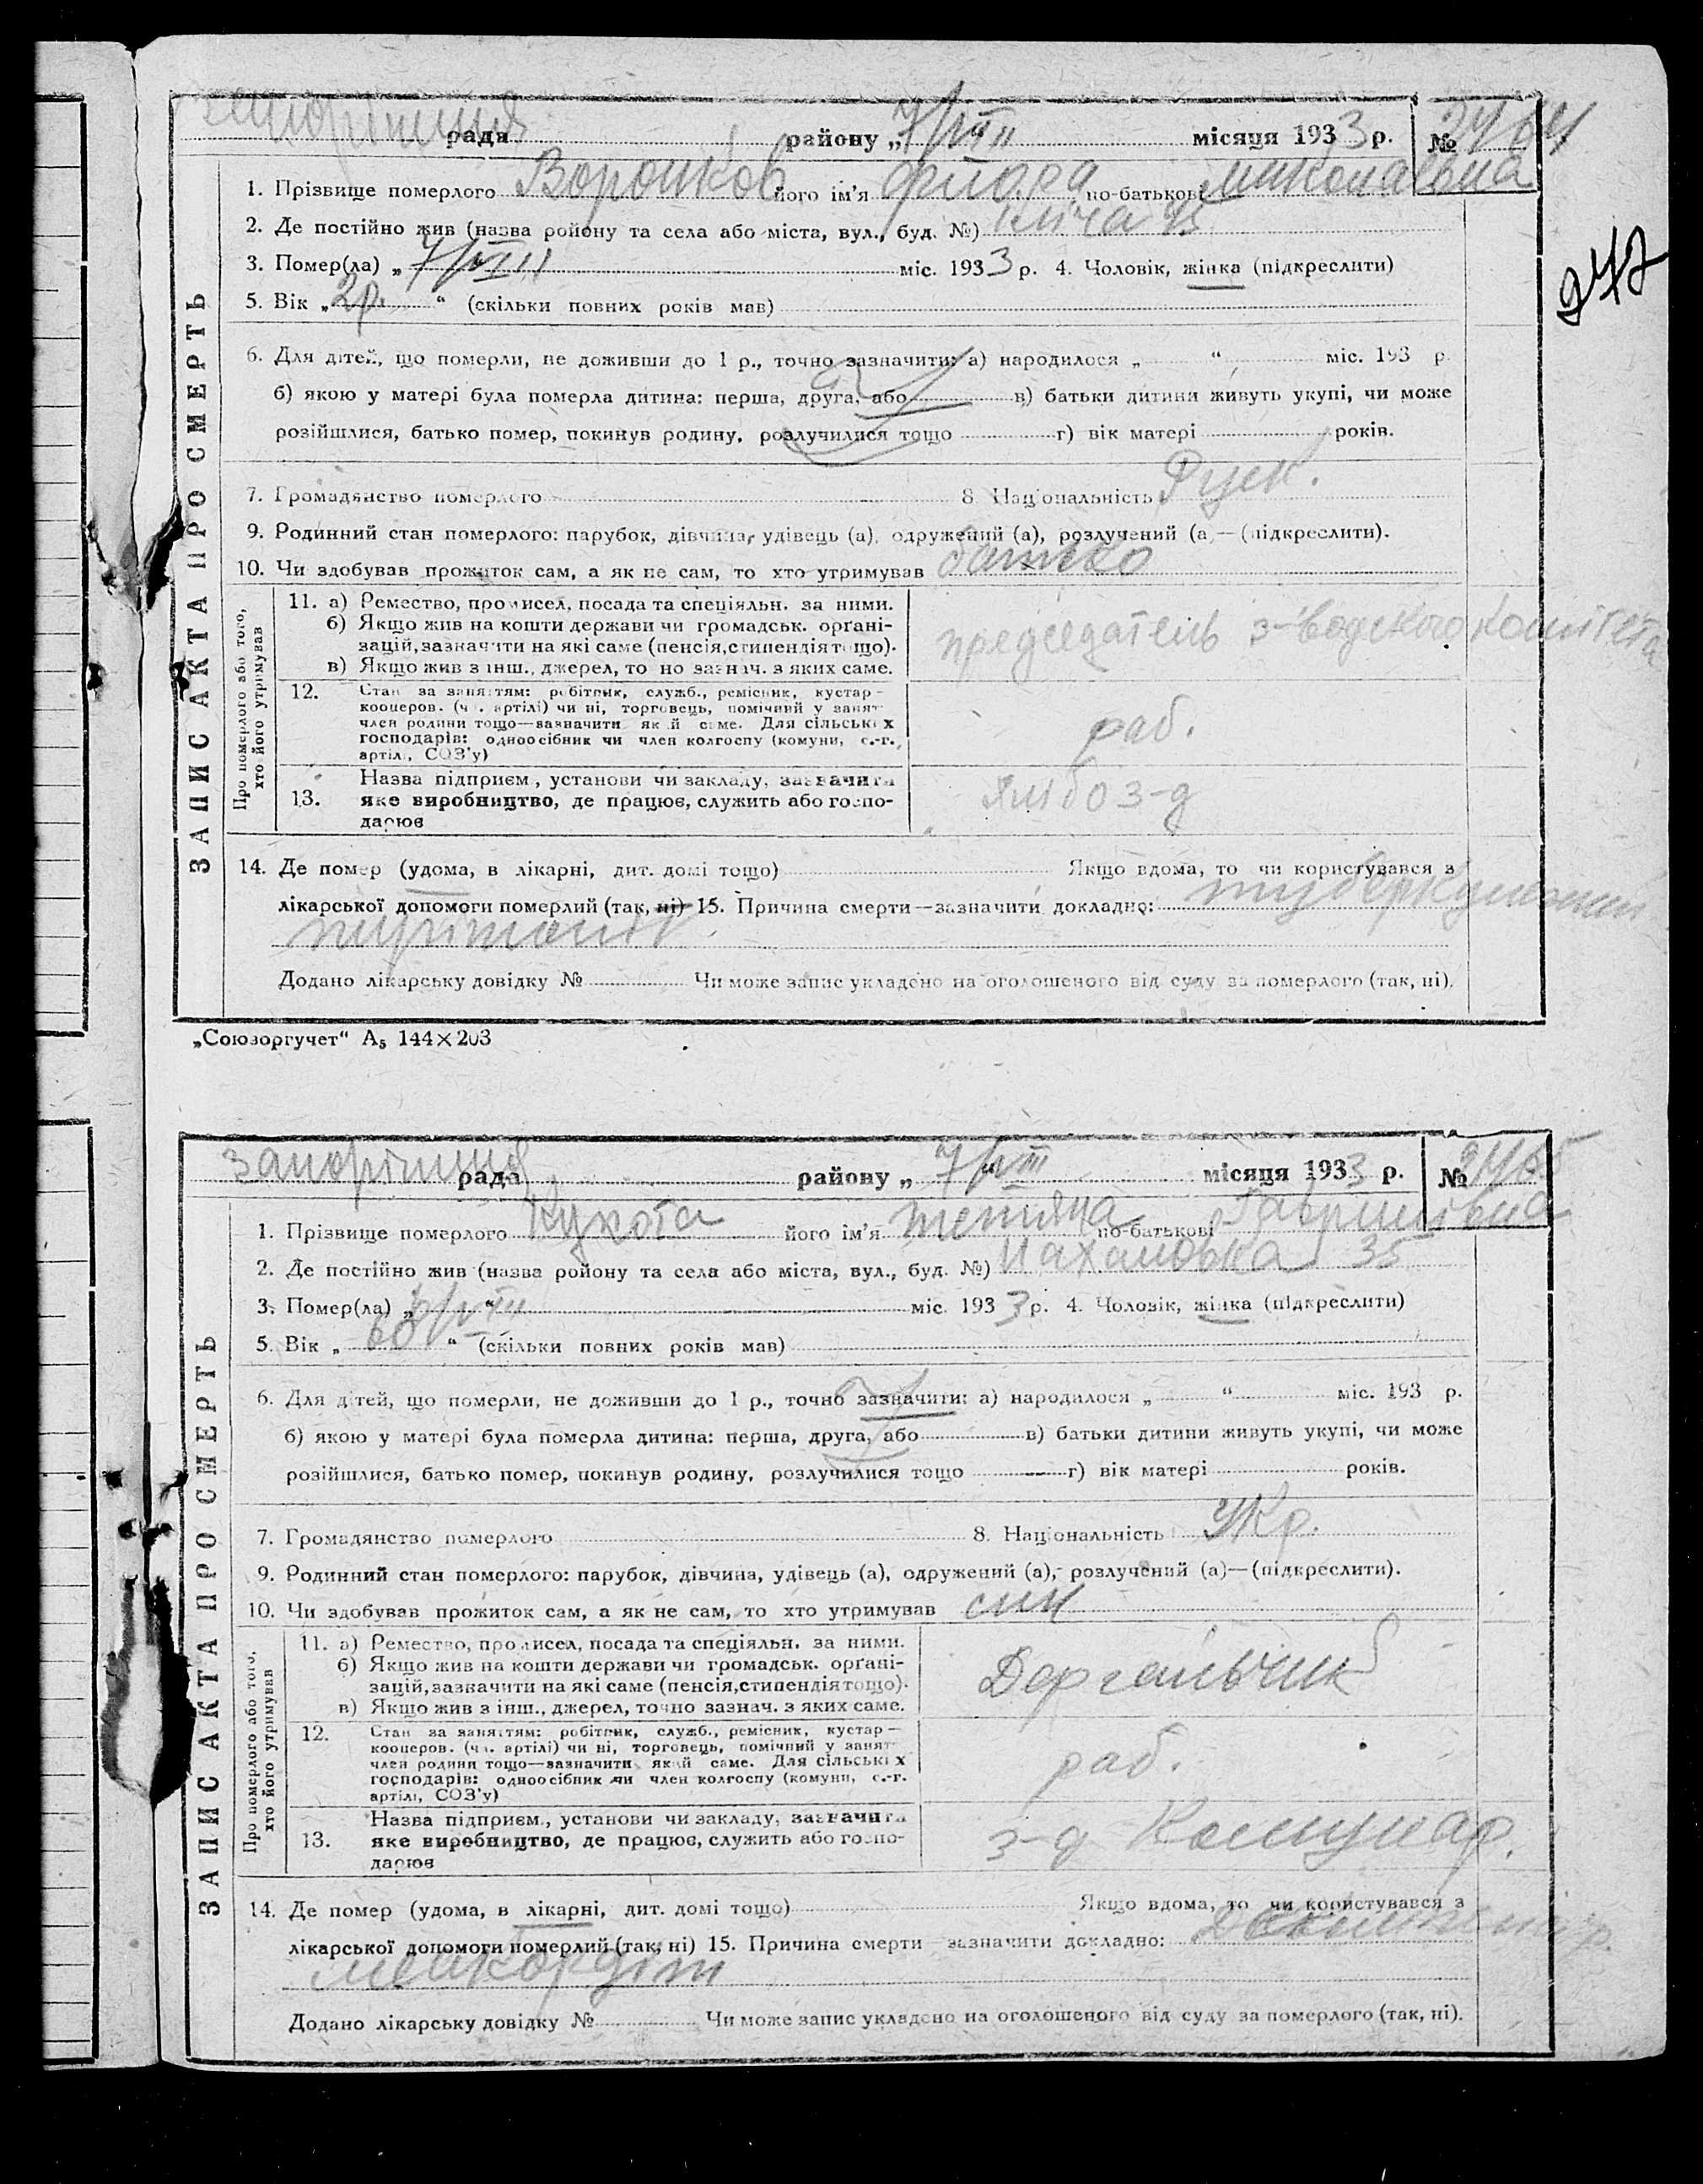 рада району „7/VIII" місяця 1933 р. № 2464
1. Прізвище померлого Воронков його ім'я по-батькові Миколаївна
2. Де постійно жив (назва ройону та села або міста, вул., буд. №)
3. Помер(ла) „7/VIII міс. 1933 р. 4. Чоловік, жінка (підкреслити)
5. Вік „2р." (скільки повних років мав)
6. Для дітей, що померли, не доживши до 1 р., точно зазначити: а) народилося „ " міс. 193 р.
б) якою у матері була померла дитина: перша, друга, або в) батьки дитини живуть укупі, чи може
розійшлися, батько помер, покинув родину, розлучилися тощо г) вік матері років.
7. Громадянство померлого 8. Національність Руск.
9. Родинний стан померлого: парубок, дівчина, удівець (а), одружений (а), розлучений (а)—(підкреслити).
10. Чи здобував прожиток сам, а як не сам, то хто утримував батько
ЗАПИС АКТА ПРО СМЕРТЬ
Про померлого або того, хто його утримував
11. а) Ремество, промисел, посада та спеціяльн. за ними.
б) Якщо жив на кошти держави чи громадськ. орґані-
зацій, зазначити на які саме (пенсія, стипендія тощо).
в) Якщо жив з інш., джерел, то но зазнач. з яких саме.
председатель з-водского комітета
12. Стан за заняттям: робітник, служб., ремісник, кустар—
кооперов. (чл. артілі) чи ні, торговець, помічний у занят
член родини тощо—зазначити який саме. Для сільських
господарів: одноосібник чи член колгоспу (комуни, с.-г.
артілі, СОЗ'у)
раб.
13. Назва підприєм., установи чи закладу, зазначити
яке виробництво, де працює, служить або госпо-
дарює
з-д
14. Де помер (удома, в лікарні, дит. домі тощо) Якщо вдома, то чи користувався з
лікарської допомоги померлий (так, ні) 15. Причина смерти—зазначити докладно:
Додано лікарську довідку № Чи може запис укладено на оголошеного від суду за померлого (так, ні).
„Союзоргучет" А5 144×203
247
рада району „7/VIII" місяця 1933 р. № 2465
1. Прізвище померлого Кухота його ім'я Тетяна по-батькові Гаврилівна
2. Де постійно жив (назва ройону та села або міста, вул., буд. №) Нахаловка 35
3. Помер(ла) „ VIII міс. 1933 р. 4. Чоловік, жінка (підкреслити)
5. Вік „60" (скільки повних років мав)
6. Для дітей, що померли, не доживши до 1 р., точно зазначити: а) народилося „ " міс. 193 р.
б) якою у матері була померла дитина: перша, друга, або в) батьки дитини живуть укупі, чи може
розійшлися, батько помер, покинув родину, розлучилися тощо г) вік матері років.
7. Громадянство померлого 8. Національність Укр.
9. Родинний стан померлого: парубок, дівчина, удівець (а), одружений (а), розлучений (а)—(підкреслити).
10. Чи здобував прожиток сам, а як не сам, то хто утримував син
ЗАПИС АКТА ПРО СМЕРТЬ
Про померлого або того, хто його утримував
11. а) Ремество, промисел, посада та спеціяльн. за ними.
б) Якщо жив на кошти держави чи громадськ. орґані-
зацій, зазначити на які саме (пенсія, стипендія тощо).
в) Якщо жив з інш., джерел, точно зазнач. з яких саме.
12. Стан за заняттям: робітник, служб., ремісник, кустар—
кооперов. (чл. артілі) чи ні, торговець, помічний у занят
член родини тощо—зазначити який саме. Для сільських
господарів: одноосібник чи член колгоспу (комуни, с.-г.
артілі, СОЗ'у)
раб.
13. Назва підприєм., установи чи закладу, зазначити
яке виробництво, де працює, служить або госпо-
дарює
з-д Комунар.
14. Де помер (удома, в лікарні, дит. домі тощо) Якщо вдома, то чи користувався з
лікарської допомоги померлий (так, ні) 15. Причина смерти—зазначити докладно:
Додано лікарську довідку № Чи може запис укладено на оголошеного від суду за померлого (так, ні).